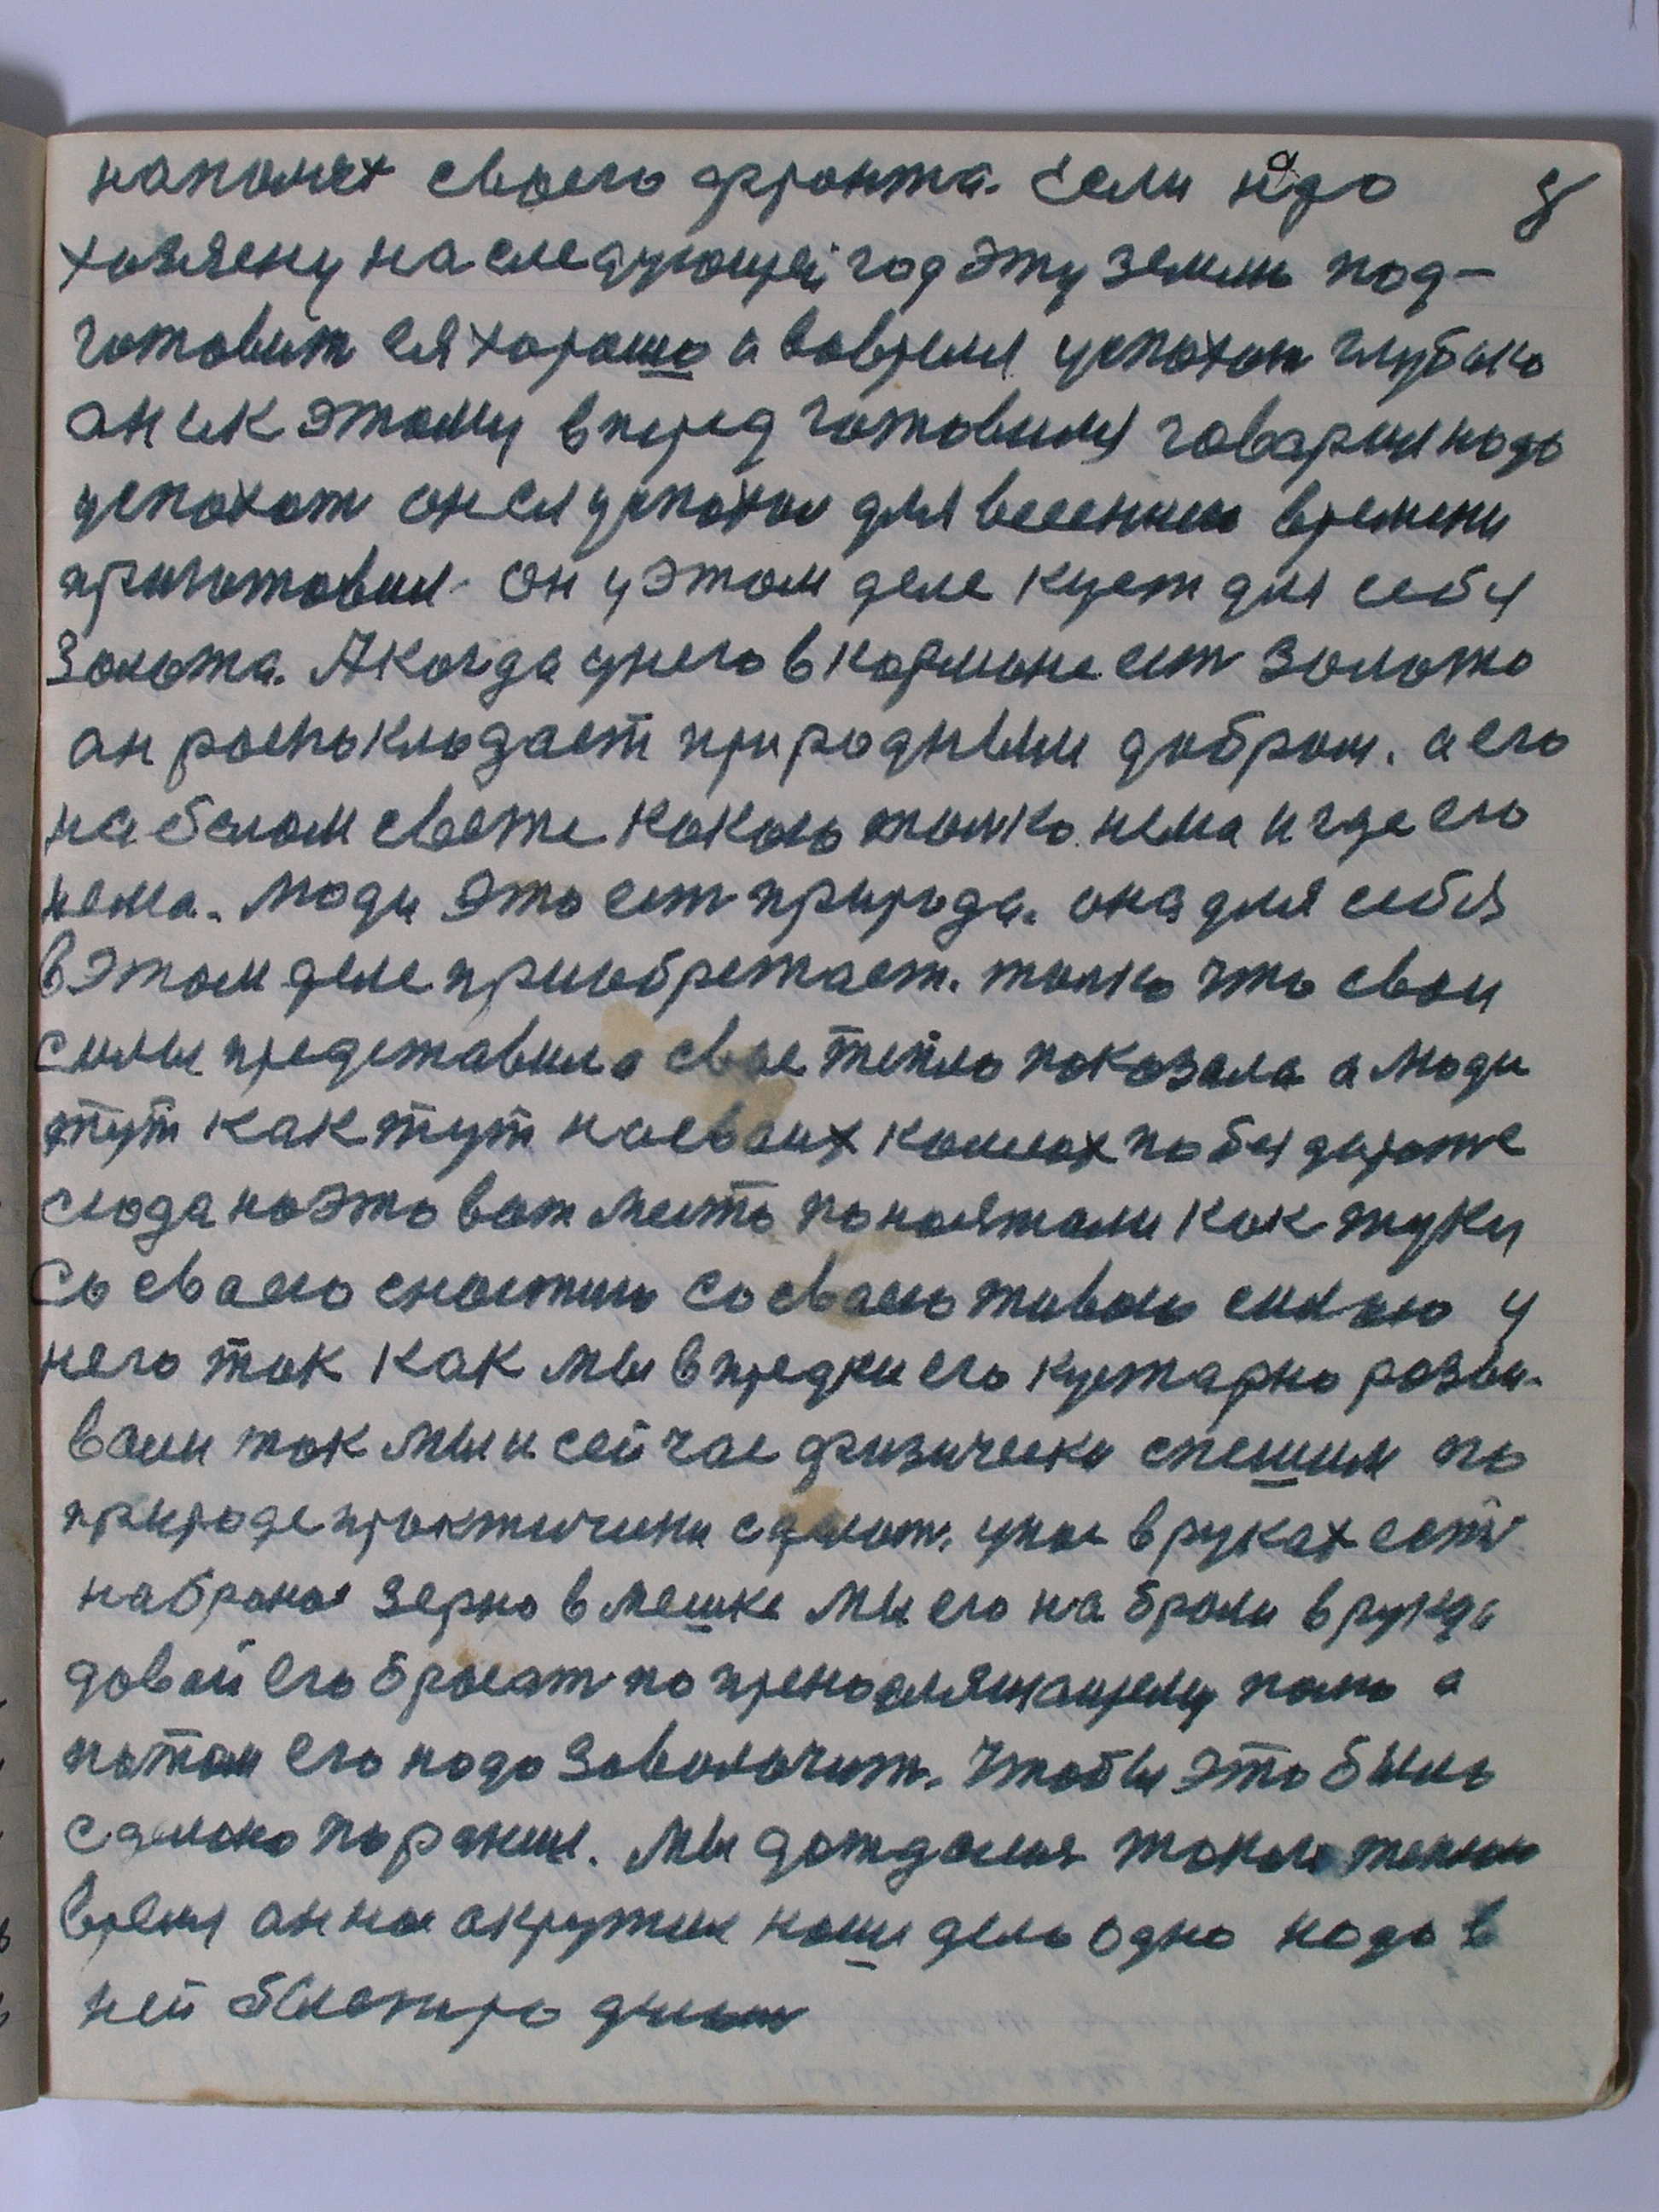 на полях своего фронта. Если надо 8
хозяену на следующей год эту землю под-
готовит ея хорошо и вовремя успохат глубоко
он и к этому вперед готовился говарил надо
успохат он ея успохал для весеннею времени
приготовил. Он у этом деле кует для себя
Золота. А когда у него в кормоне ест золото
он роспоклюдает природными добром. а его
на белом свете кокого толко нема и где его
нема. Люди это ест природа. она для себя
в этом деле приобретает. толко что свои
силы представила свое тепло показала а люди
тут как тут на своих колесах по
сюда на это вот место как жуки
Со своею снастию со своею живою силою у
него так как мы в предки его кустарно розви-
вали так мы и сейчас физически спешим по
природе практически сделат. у нас в руках ест
набраное зерно в мешке мы его на брали в руки да
довай его бросат по пренодлежащему полю а
потом его надо Заволочит. Чтобы это было
сделоно по раньше. Мы дождалися такое теплое
время он нас окружил наше дело одно надо в
ней быстро